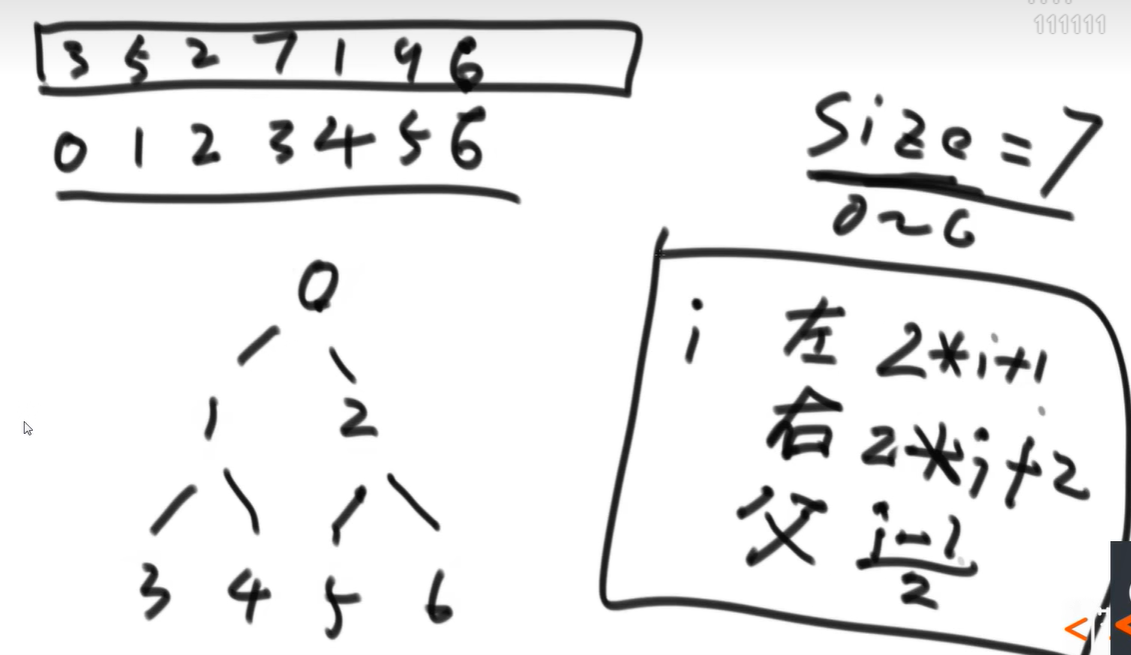 111111
3 5 2 7 1 9 6
0 1 2 3 4 5 6
Size=7
0~6
0
1 2
3 4 5 6
i 左 2*i+1
右 2*i+2
父 i-1
2